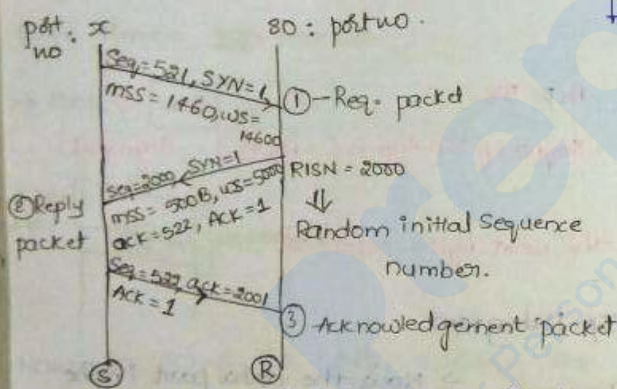 port : x
no
80 : port no.
Seq=521, SYN=1,
mss = 1460, ws =
14600
① - Req. packet
Seq=2000, SYN=1
mss = 500B, ws=5000
ack=522, ACK=1
② Reply
packet
RISN = 2000
⇓
Random initial Sequence
number.
Seq=522 ack=2001
ACK=1
③ Acknowledgement packet
S
R